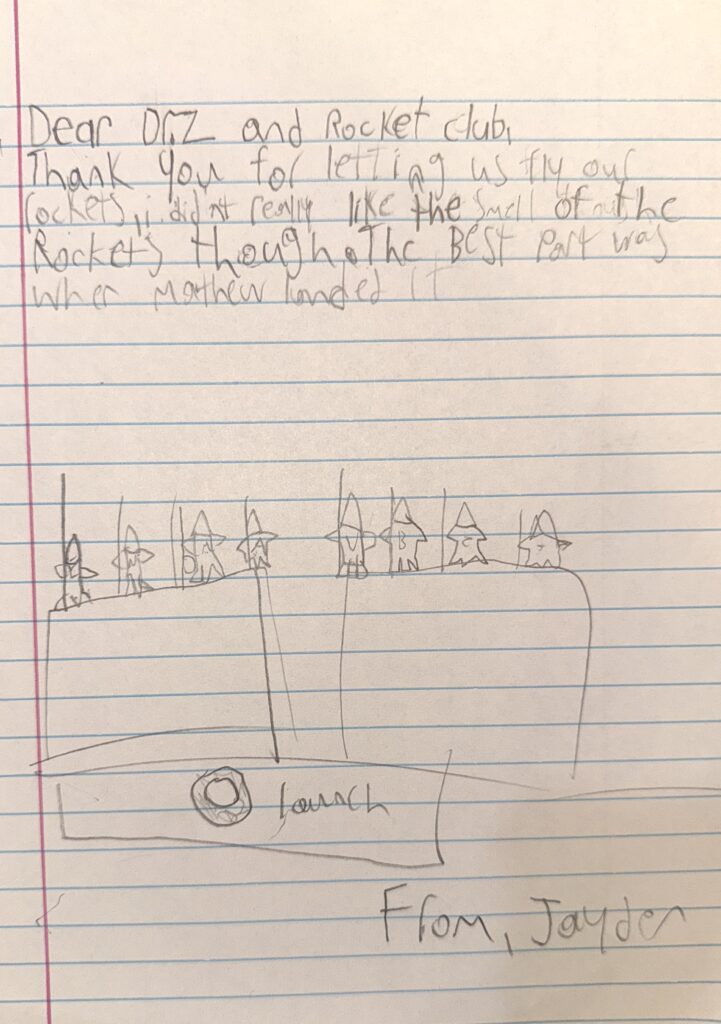 Dear Dr.Z and Rocket club,
Thank you for letting us fly our
rockets, i didnt really like the smell of the
Rockets though. The BEST Part was
when Mathew landed IT
B
launch
From, Jayden